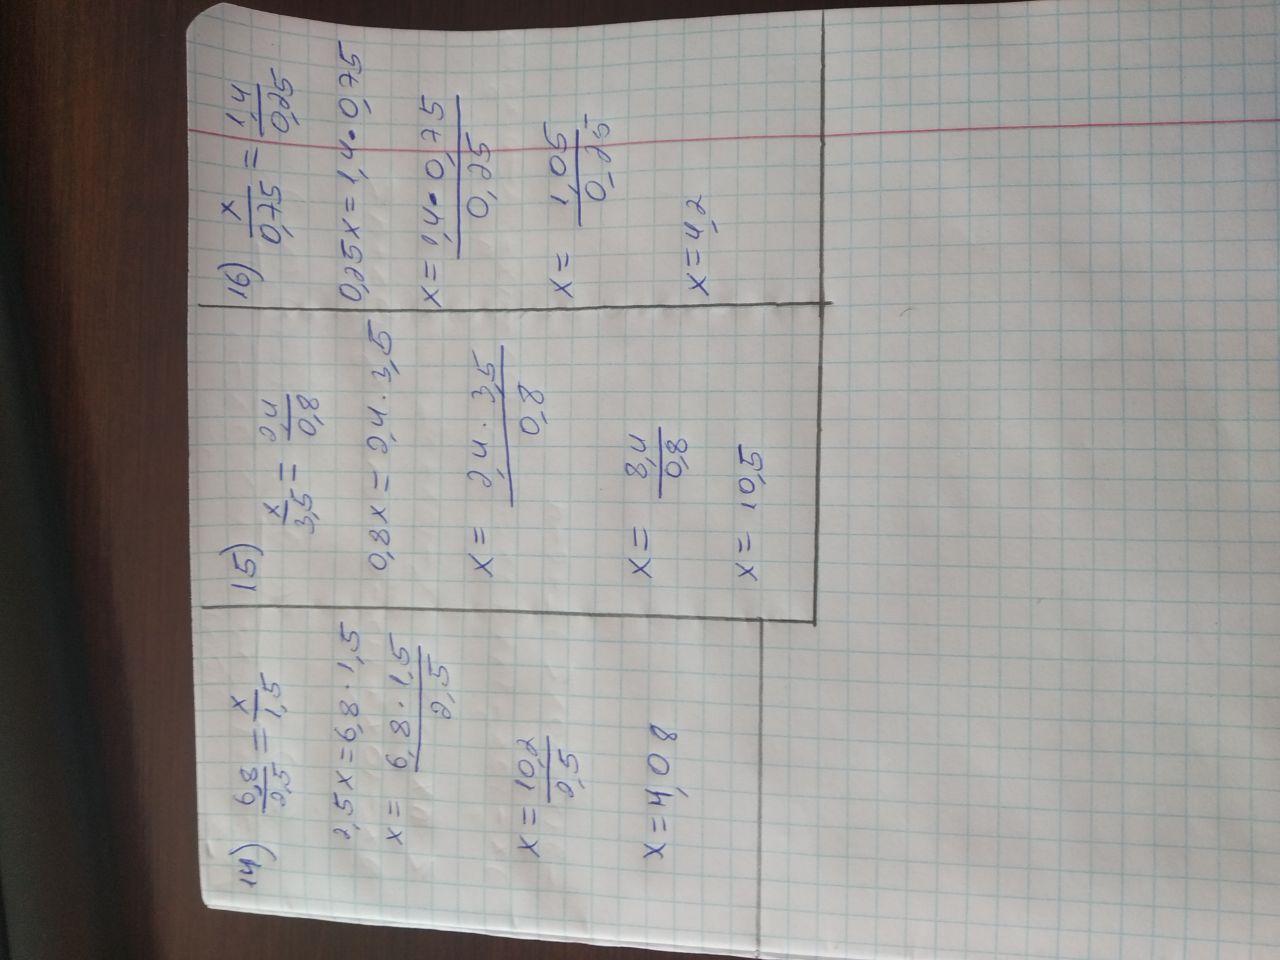 14)
6,8/2,5 = x/1,5
2,5x = 6,8 · 1,5
x = 6,8 · 1,5/2,5
x = 10,2/2,5
x = 4,08
15)
x/3,5 = 2,4/0,8
0,8x = 2,4 · 3,5
x = 2,4 · 3,5/0,8
x = 8,4/0,8
x = 10,5
16) x/0,75 = 1,4/0,25
0,25x = 1,4 · 0,75
x = 1,4 · 0,75/0,25
x = 1,05/0,25
x = 4,2